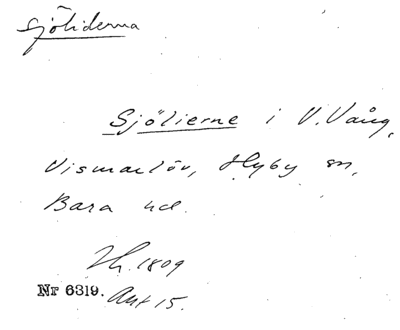 Sjöliderna
Sjölierne i V. Vång,
Vismarlöv, Hyby sn,
Bara hd.
Zh. 1809
Nr 6319. Akt 15.